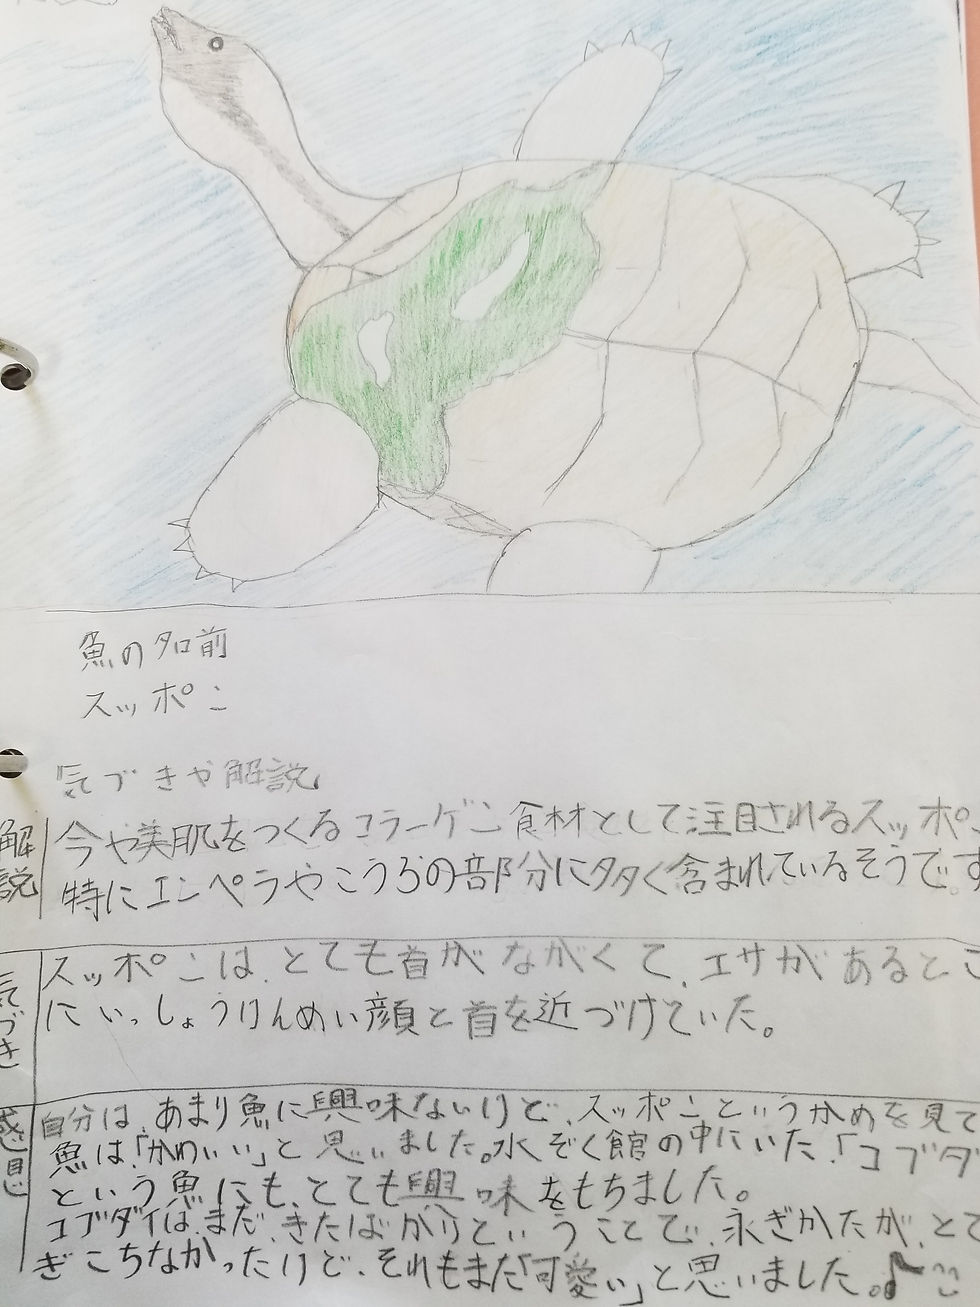 魚の名前
スッポン
気づきや解説
解説
今や美肌をつくるコラーゲン食材として注目されるスッポ
特にエンペラやこうらの部分に多く含まれているそうです
気づき
スッポンは、とても首がながくて、エサがあるとこ
にいっしょうけんめい顔と首を近づけていた。
感想
自分は、あまり魚に興味ないけど、スッポンというかめを見て
魚は「かわいい」と思いました。水ぞく館の中にいた、「コブダ
という魚にも、とても興味をもちました。
コブダイは、まだ、きたばかりということで、永ぎかたが、とて
ぎこちなかったけど、それもまた「可愛い」と思いました。